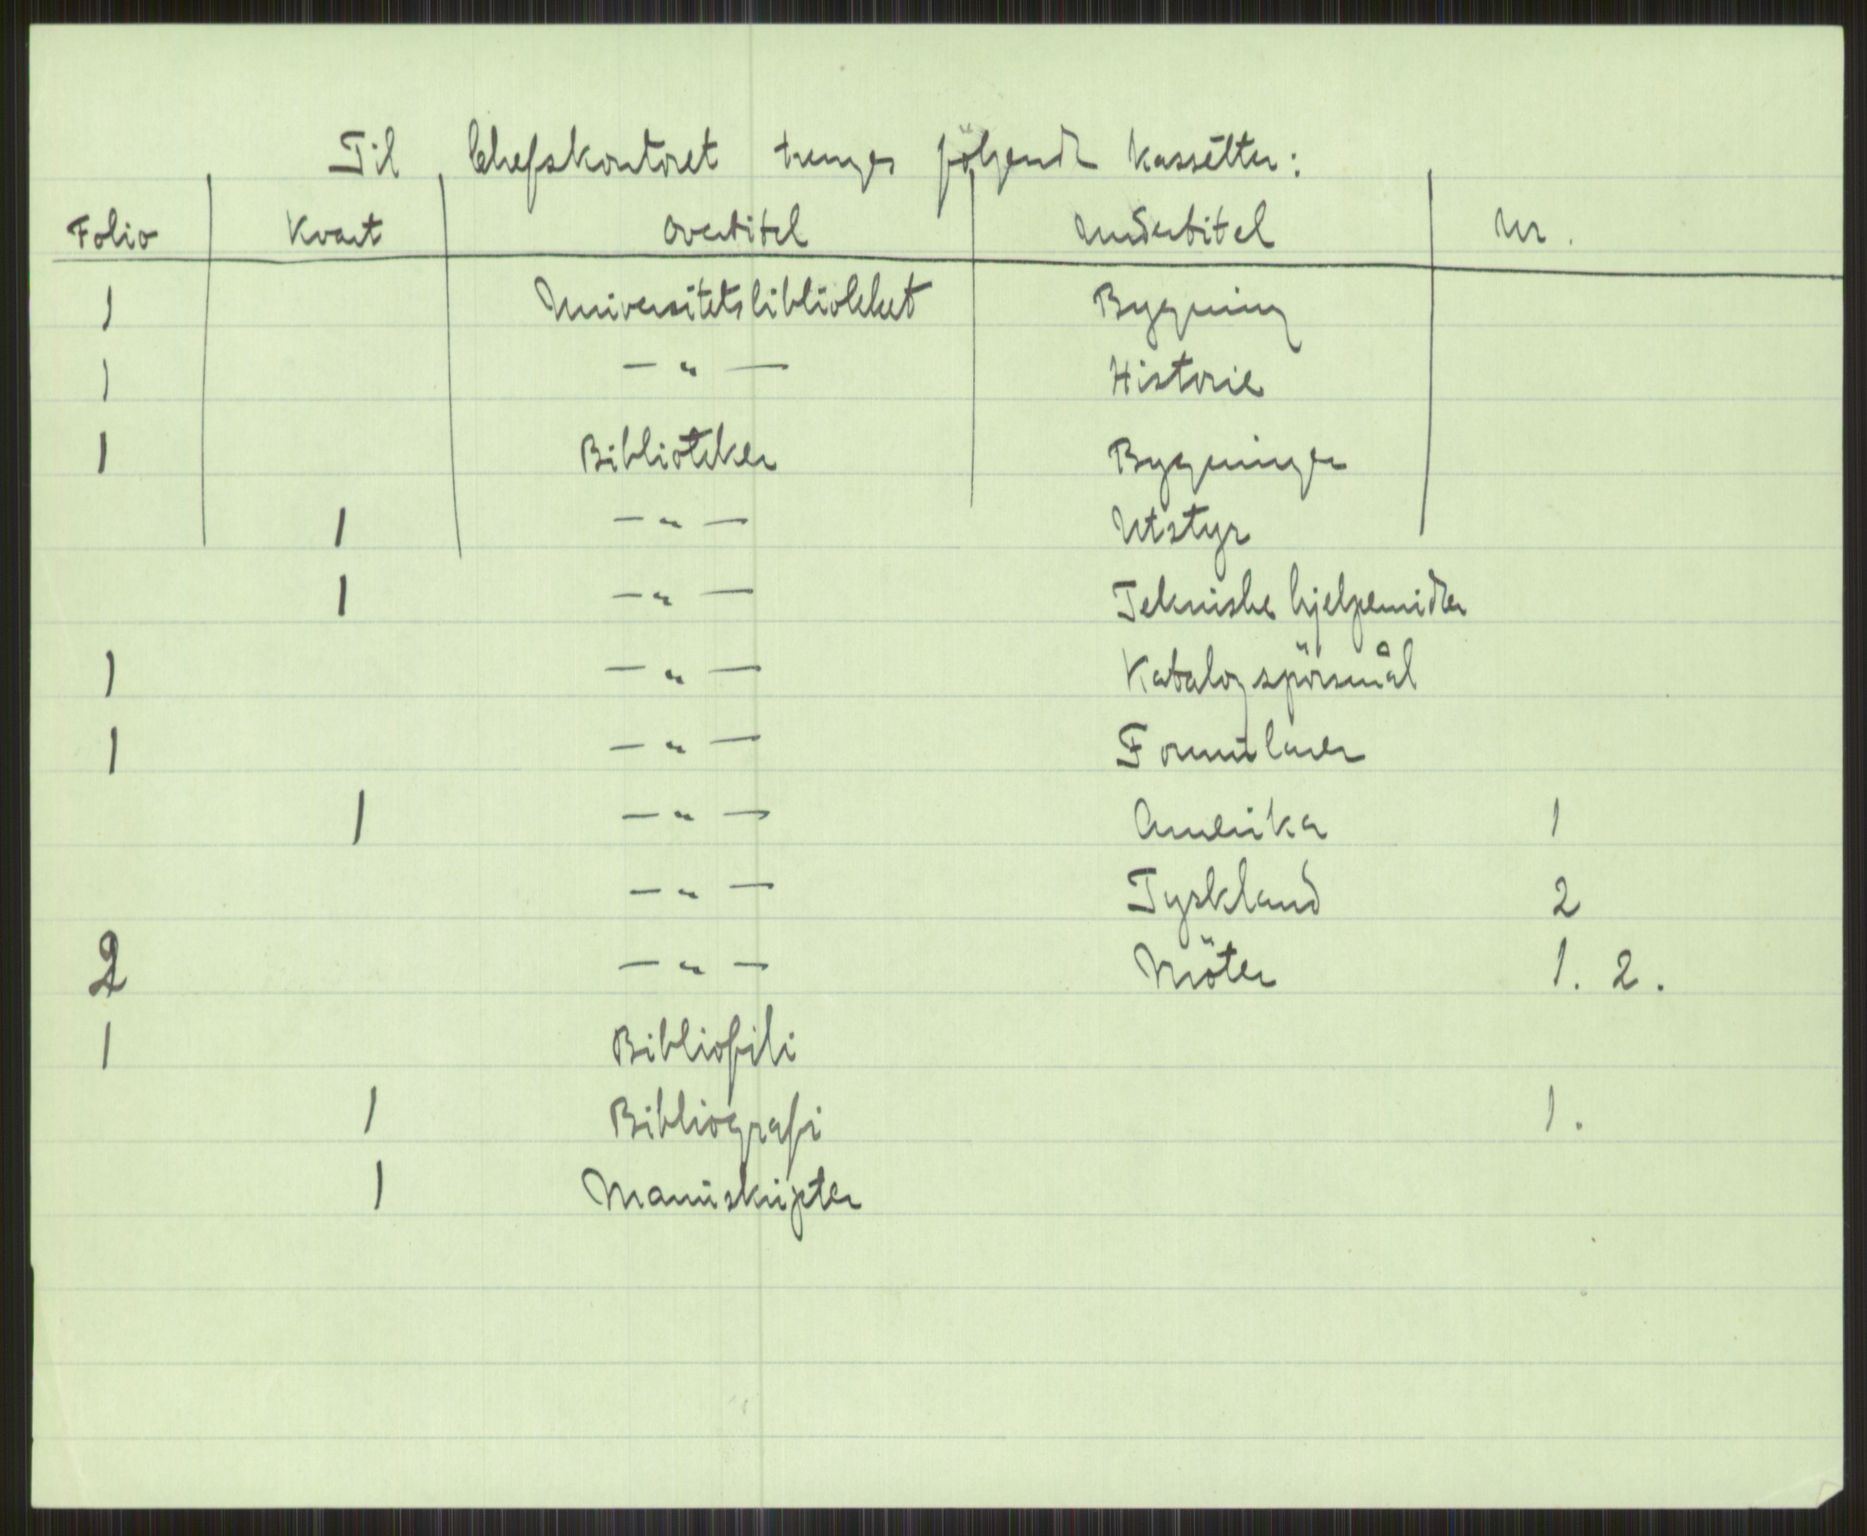 Til Chefskontoret trenges följende kassetter:
Folio Kvart Overtitel Undertitel Nr.
1 Universitetsbiblioteket Bygning
1 — " — Historie
1 Biblioteker Bygninger
1 — " — Utstyr
1 — " — Tekniske hjelpemidler
1 — " — Katalogspörsmål
1 — " — Formularer
1 — " — Amerika 1
— " — Tyskland 2
2 — " — Möter 1. 2.
1 Bibliofili
1 Bibliografi 1.
1 Manuskripter